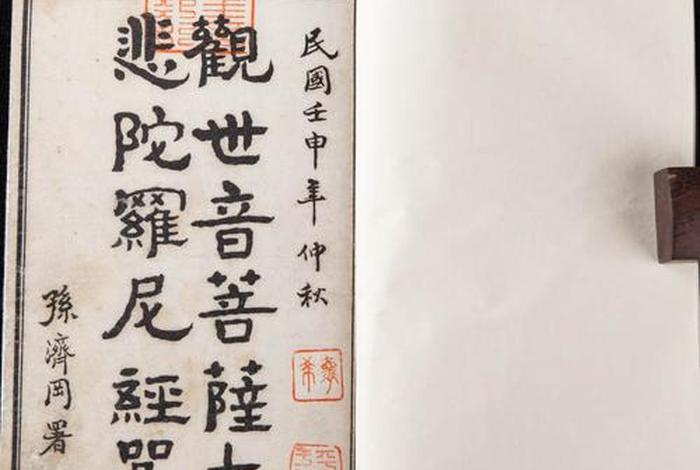 民國壬申年仲秋
觀世音菩薩
悲陀羅尼經
孫濟岡署